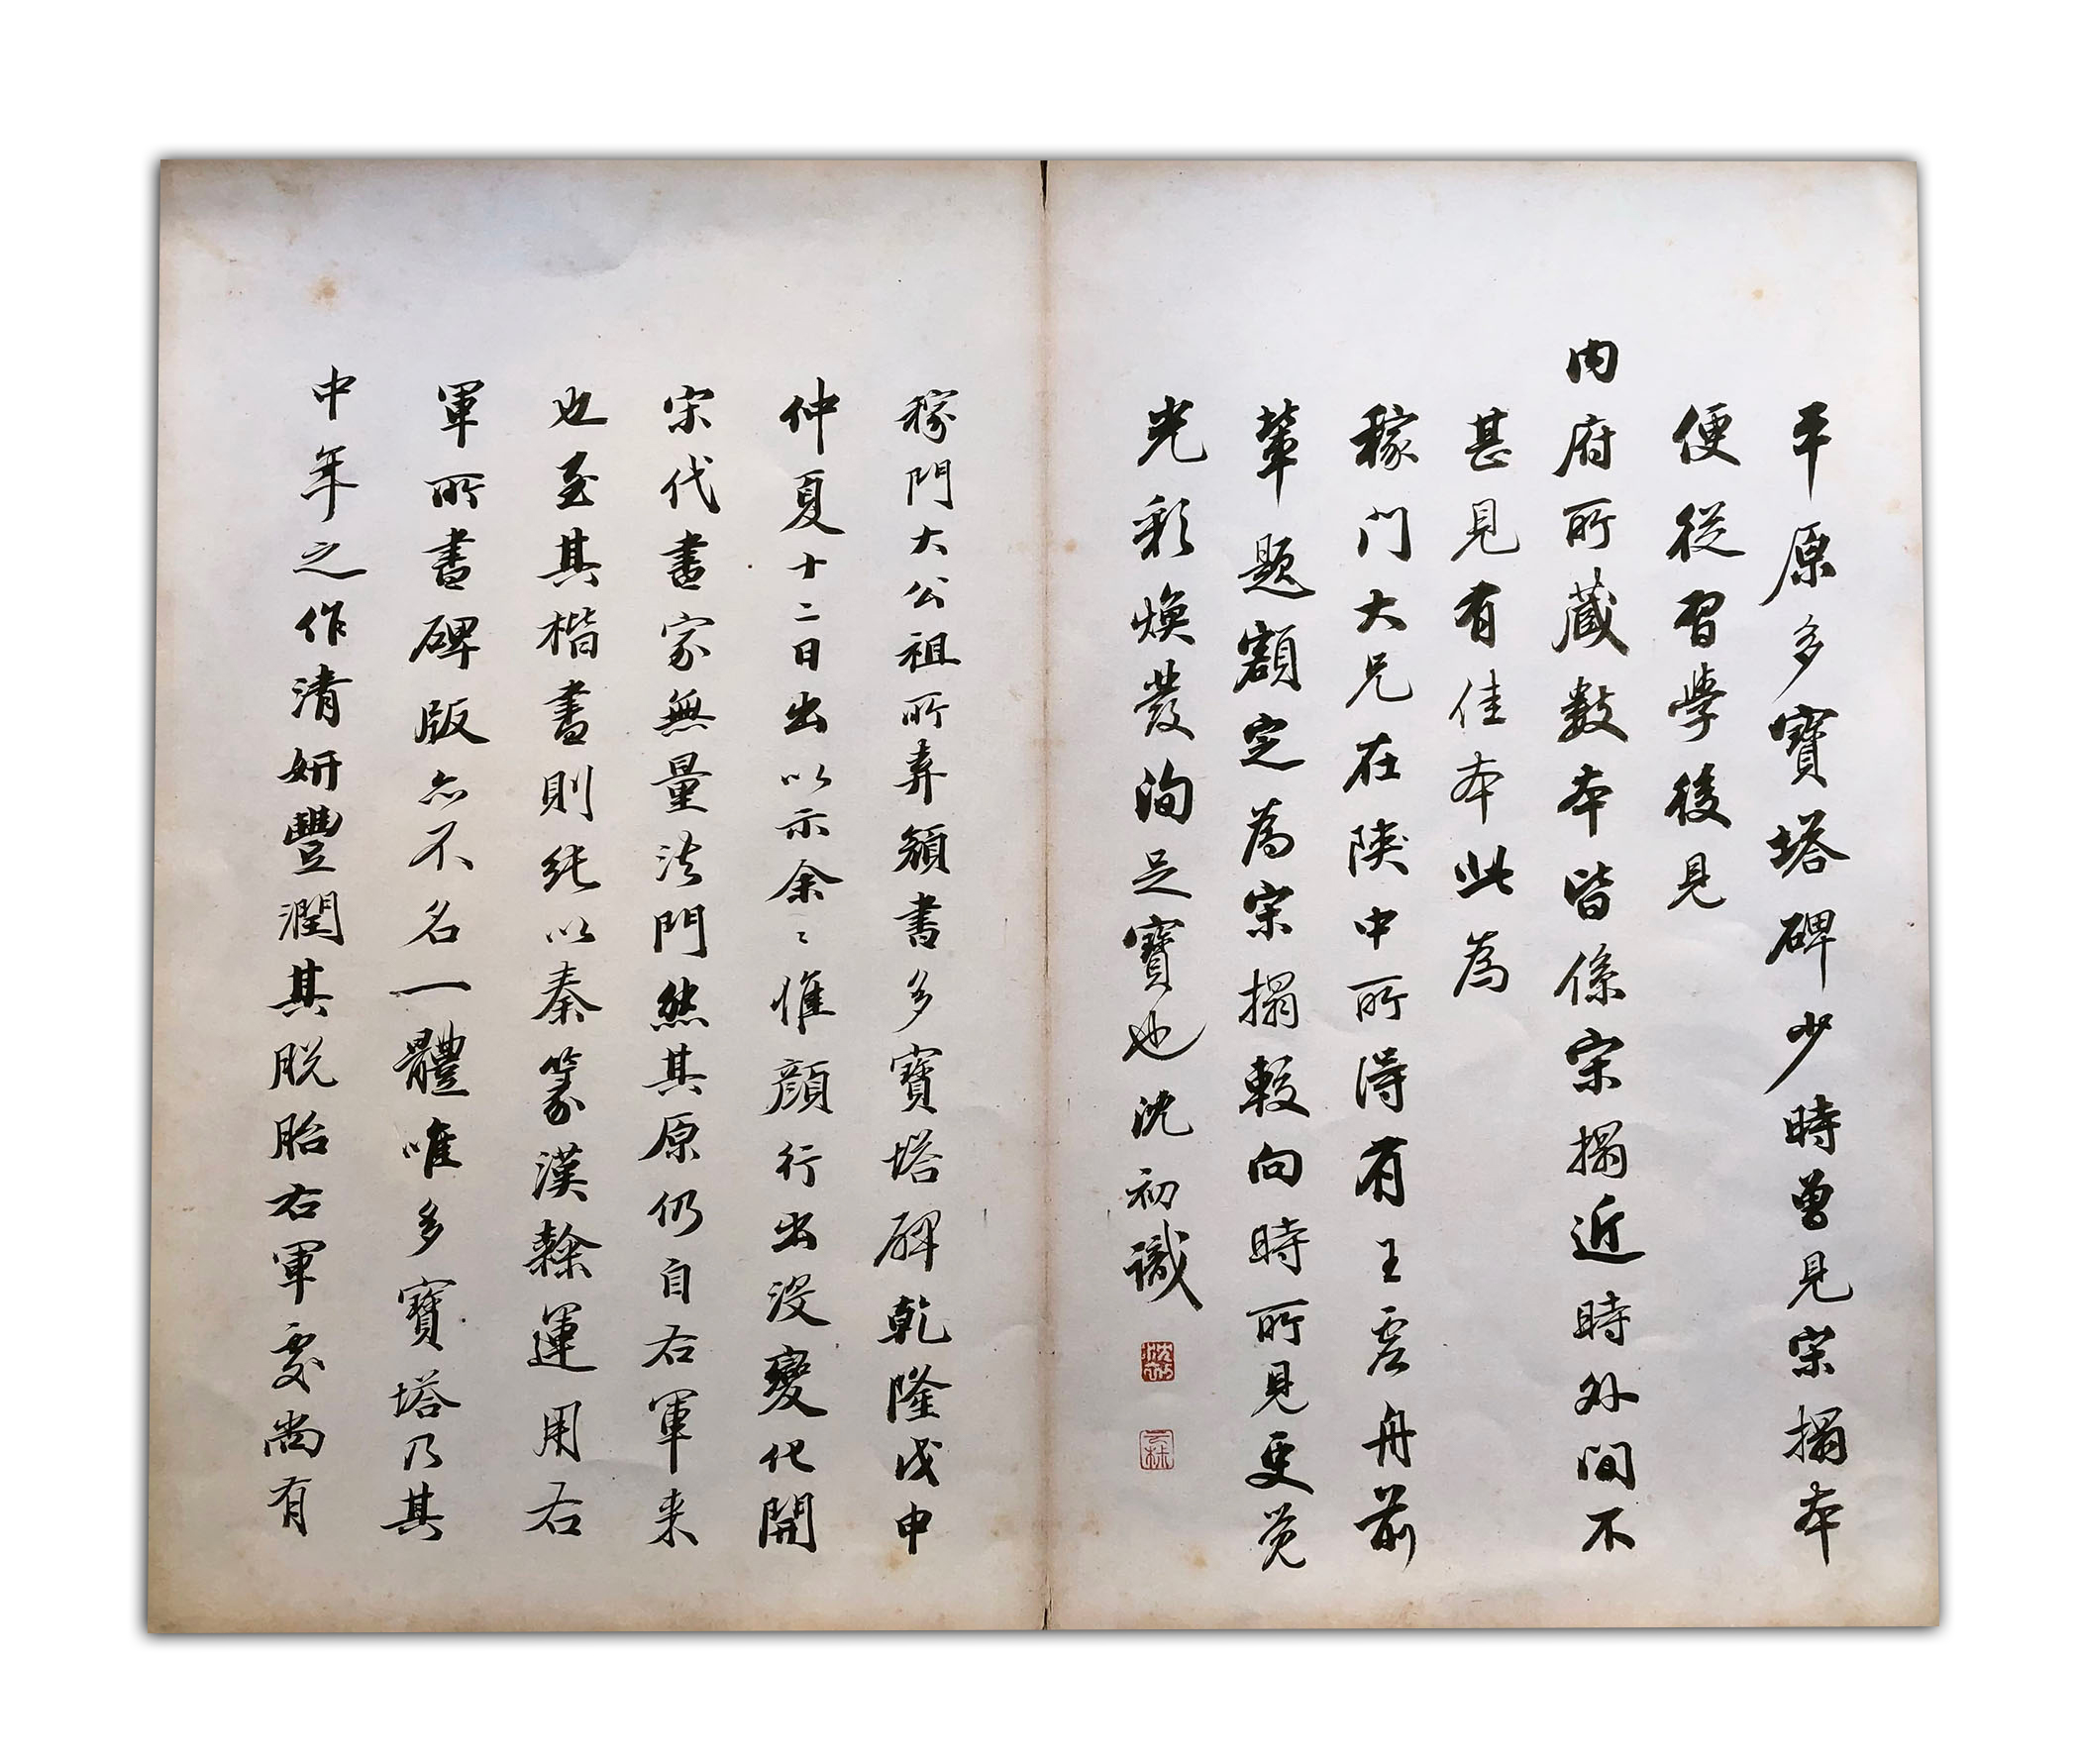 平原多寶塔碑少時曾見宋搨本
便從習學後見
內府所藏數本皆係宋搨近時外間不
甚見有佳本此為
稼门大兄在陝中所得有王虛舟前
輩題額定為宋搨較向時所見更覚
光彩煥發洵足寶也沈初識
沈初
雲林
稼門大公祖所弆顏書多寶塔碑乾隆戊申
仲夏十二日出以示余〻惟顏行出沒變化開
宋代書家無量法門然其原仍自右軍来
也至其楷書則純以秦篆漢隸運用右
軍所書碑版亦不名一體唯多寶塔乃其
中年之作清妍豐潤其脫胎右軍處尚有